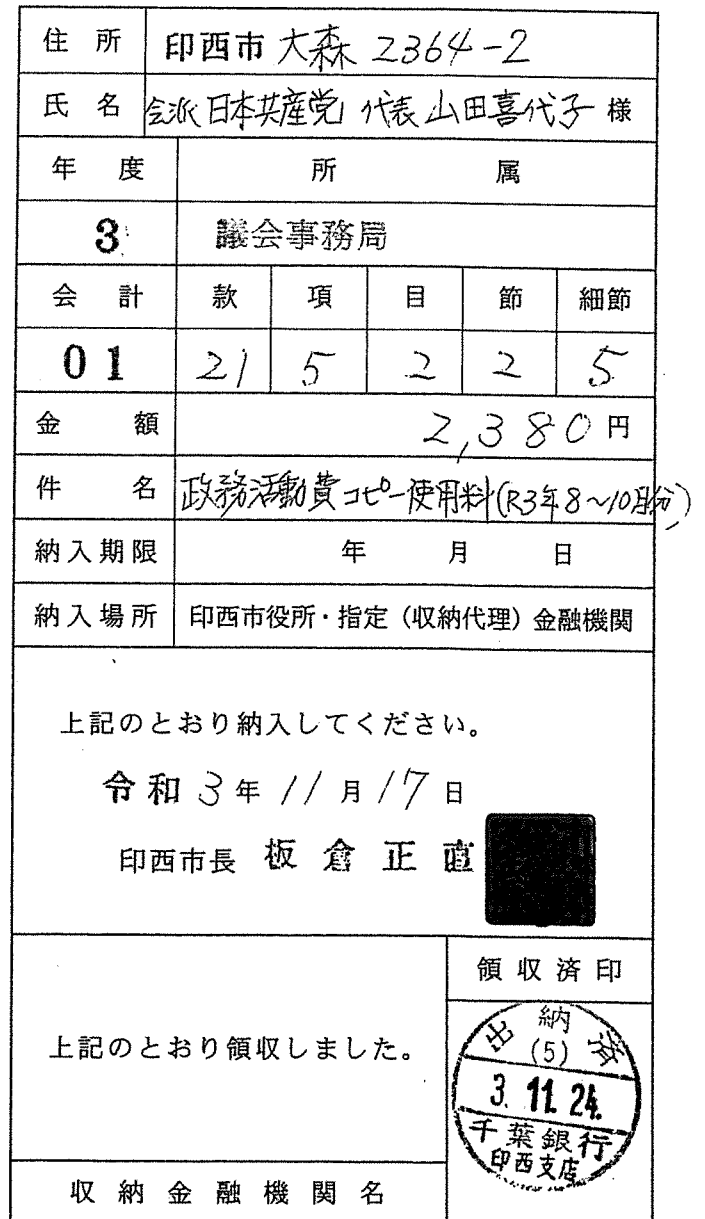 住所 印西市 大森 2364-2
氏名 会派 日本共産党 代表 山田喜代子 様
年度 所属
3 議会事務局
会計 款 項 目 節 細節
01 21 5 2 2 5
金額 2,380円
件名 政務活動費コピー使用料(R3年8～10月分)
納入期限 年 月 日
納入場所 印西市役所・指定（収納代理）金融機関
上記のとおり納入してください。
令和3年11月17日
印西市長 板倉正直
領収済印
上記のとおり領収しました。
出納済
(5)
3. 11. 24.
千葉銀行
印西支店
収納金融機関名